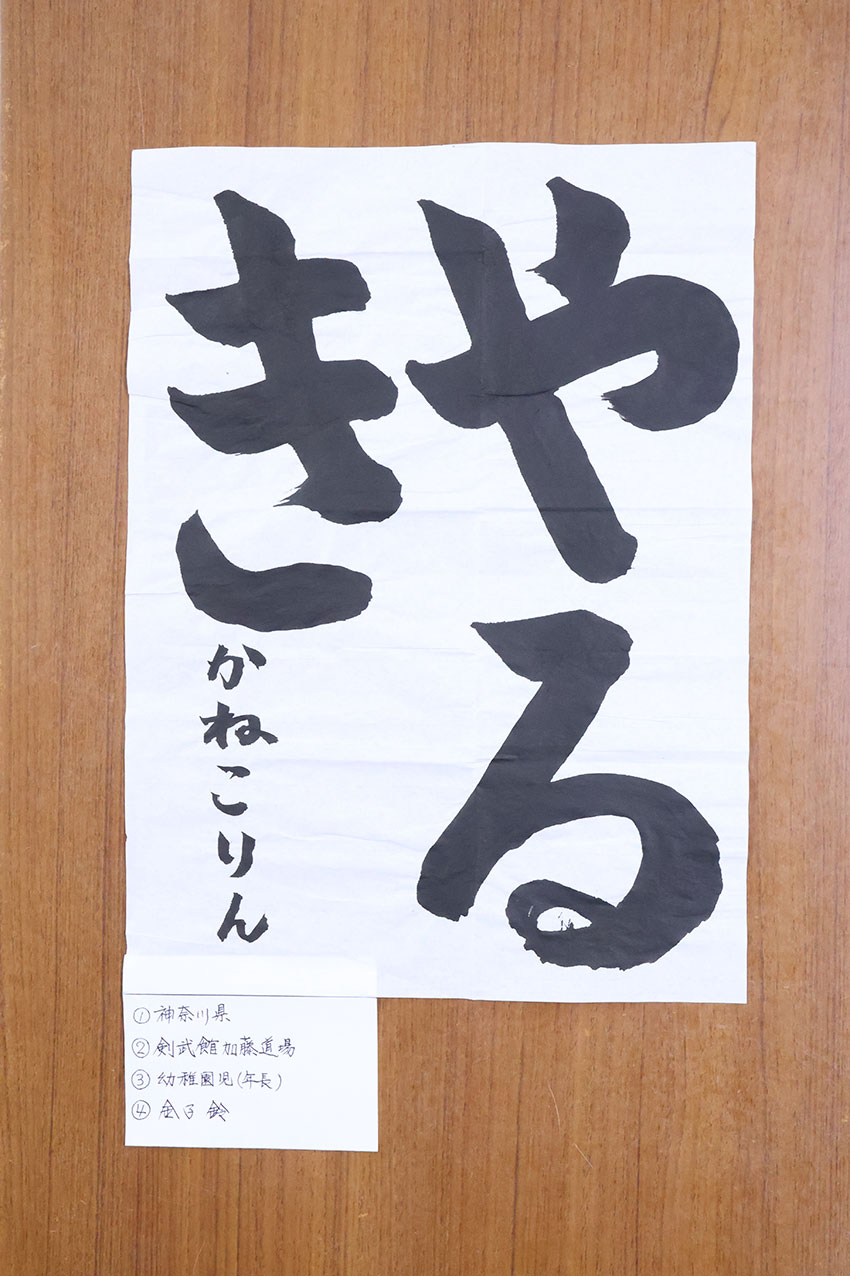 やる
き
かねこりん
①神奈川県
②剣武館加藤道場
③幼稚園児(年長)
④金子鈴